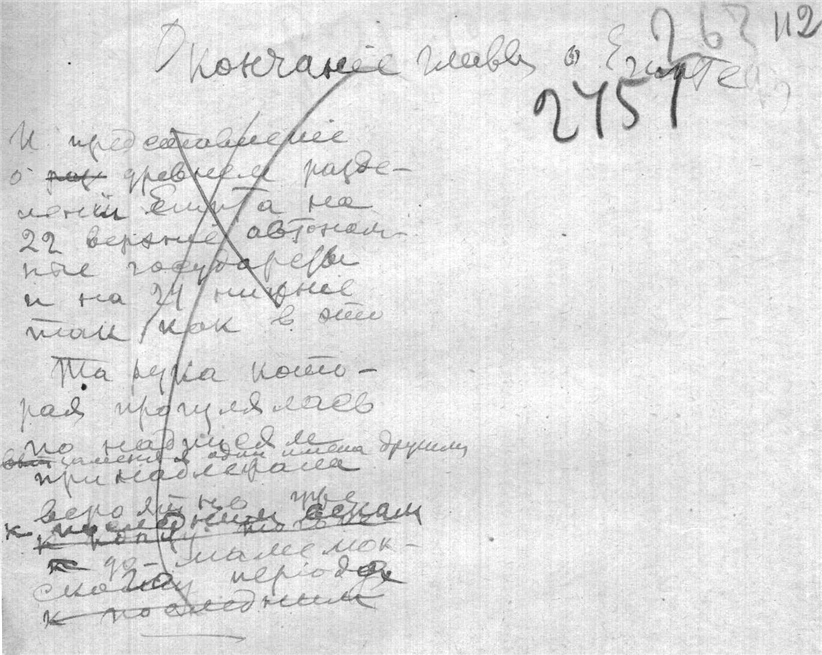 Окончаніе главы о Египте
263 112
2451
И представленіе
о древнем разде-
леніи Египта на
22 верхніе автоном-
ные государства
и на 21 нижніе
так как в это
Та рука кото-
рая прогулялась
по надписям
заменяя одни имена другими
принадлежала
вероятно уже
к последним векам
к концу
до-мамелюк-
скому періода
к последним